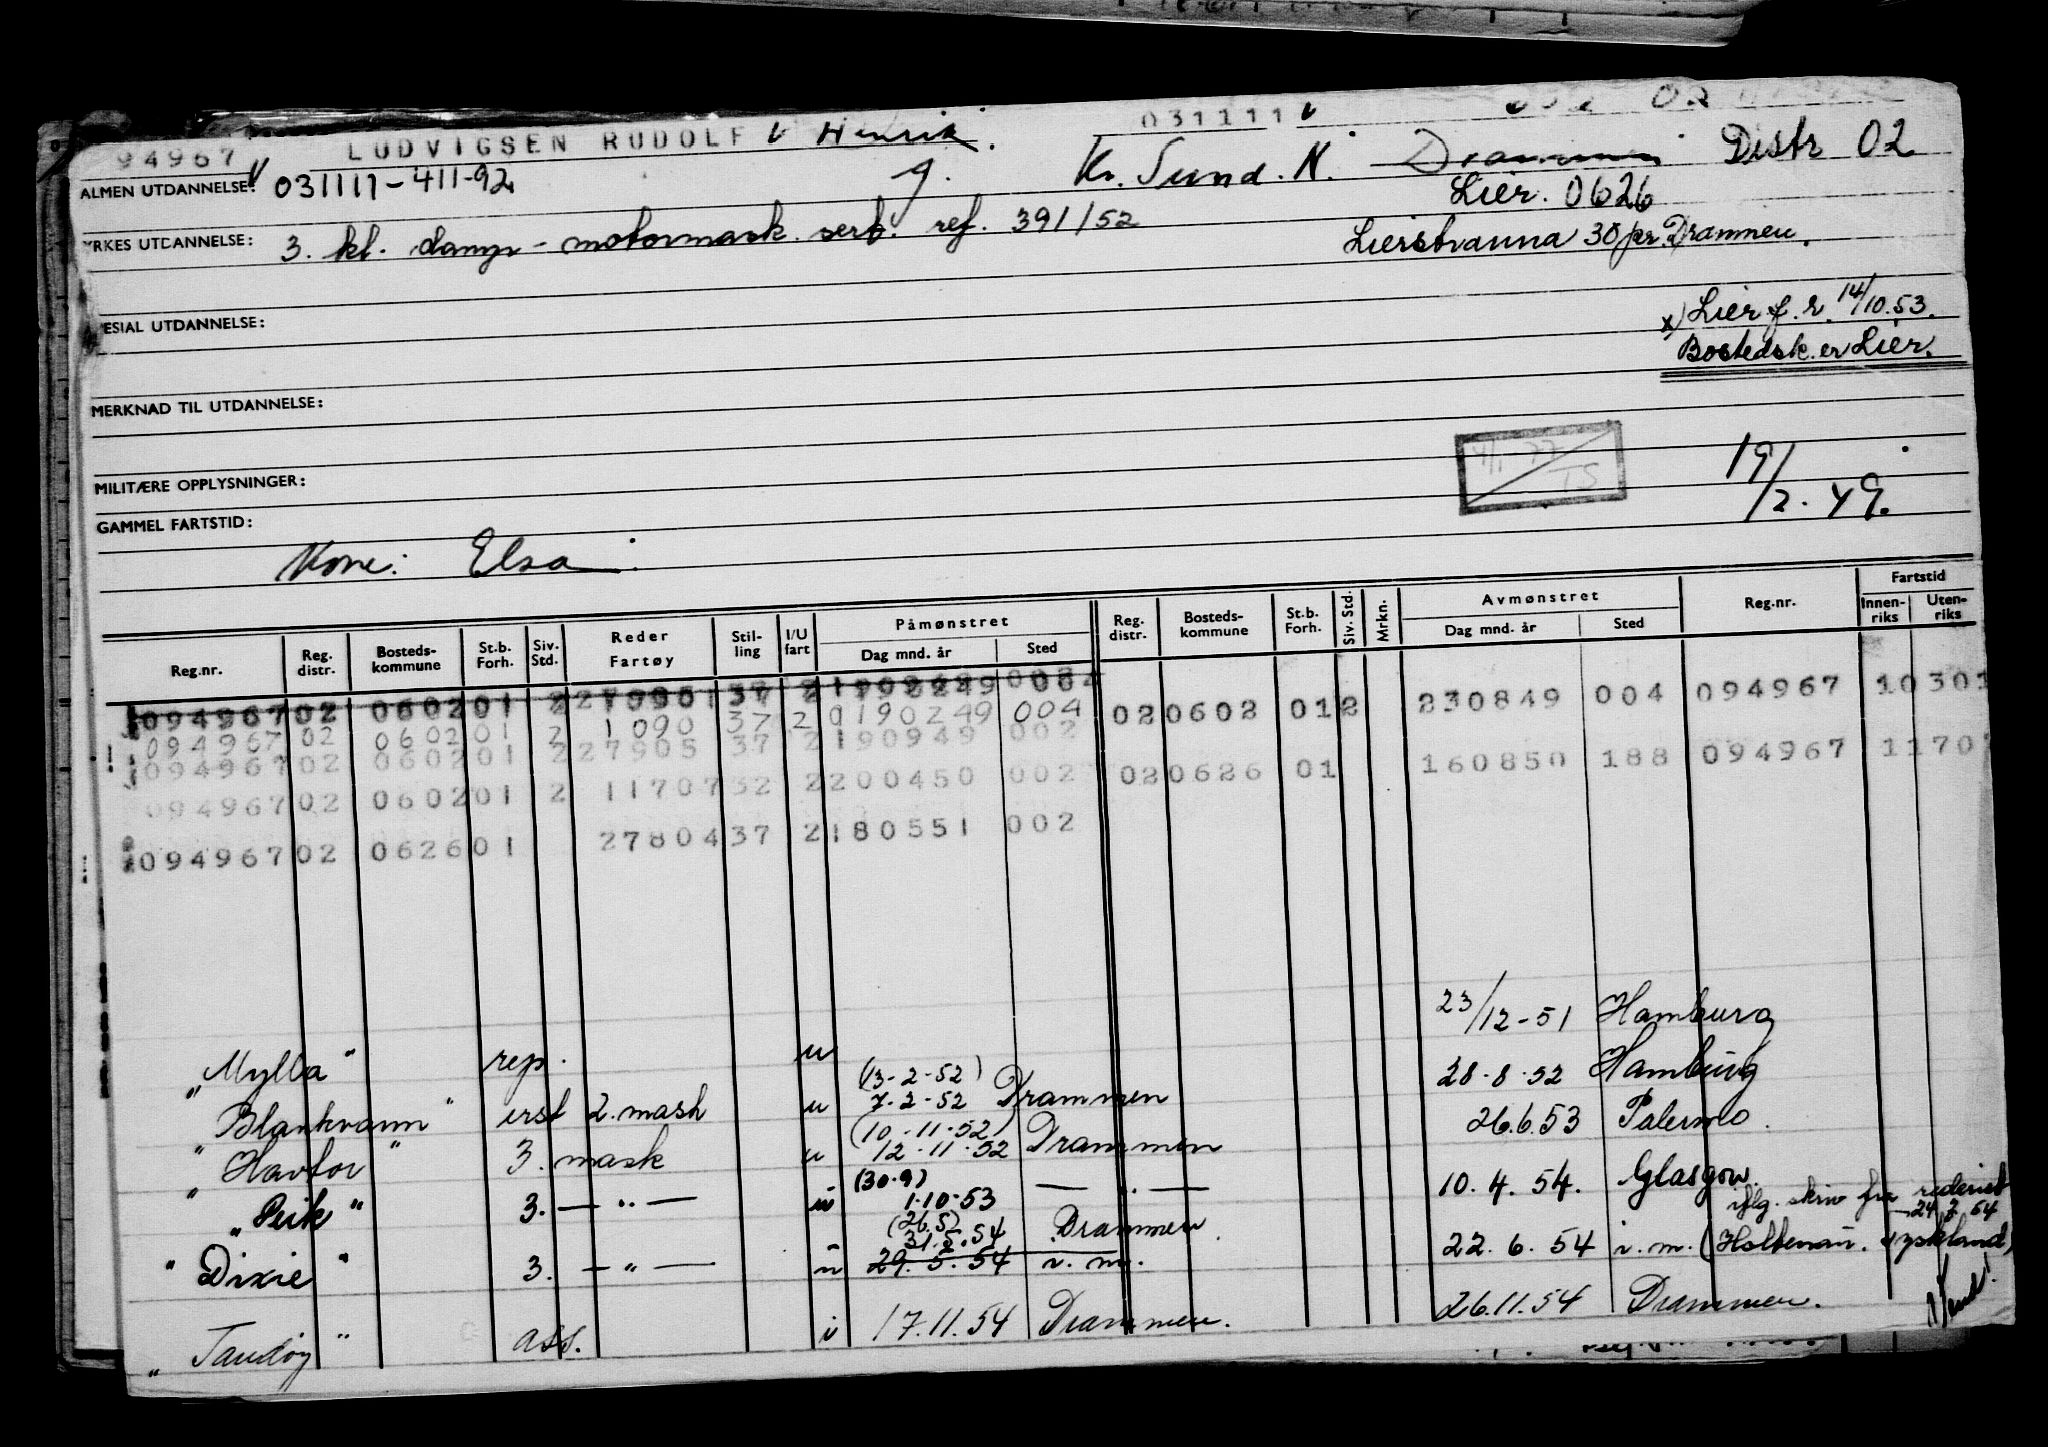 94967 V LUDVIGSEN RUDOLF V Henrik. 031111 V
ALMEN UTDANNELSE: 031111-411-92 g. Kr. Sund. N. Drammen Distr 02
Lier. 0626
YRKES UTDANNELSE: 3. kl. damp- motormask. sert. ref. 391/52 Lierstranna 30 pr. Drammen.
SPESIAL UTDANNELSE: x) Lier f. r. 14/10.53.
Bostedsk. er Lier.
MERKNAD TIL UTDANNELSE:
4/1-77
TS
MILITÆRE OPPLYSNINGER: 19/2.49.
GAMMEL FARTSTID:
Kone: Elsa
Reg.nr. Reg. distr. Bosteds-kommune St.b. Forh. Siv. Std. Reder Fartøy Stil-ling I/U fart Påmønstret Dag mnd. år Sted Reg. distr. Bosteds-kommune St.b. Forh. Siv. Std. Mrkn. Avmønstret Dag mnd. år Sted Reg.nr. Fartstid Innen-riks Uten-riks
094967 02 0602 01 2 020602 01 2 230849 004 094967 10301
094967 02 0602 01 2 1 090 37 2 0190249 004
094967 02 0602 01 2 27905 37 2 190949 002 020626 01 160850 188 094967 1170
094967 02 0602 01 2 11707 32 2 200450 002
094967 02 0626 01 27804 37 2 180551 002
"Mylla" rep. u 23/12-51 Hamburg
(13-2-52)
"Blankvann" erst 2. mask u 7-2-52 Drammen 28.8.52 Hamburg
(10-11-52)
"Havtor" 3. mask u 12.11.52 Drammen 26.6.53 Palermo.
(30.9)
"Peik" 3. — " — u 1.10.53 — " — 10.4.54. Glasgow.
iflg. skriv fra rederiet
(26.5)
31.5.54 Drammen.
"Dixie" 3. — " — u 29.5.54 i. m. 22.6.54 i. m. (Holtenau. Tyskland)
"Tandøy" ass. i 17.11.54 Drammen. 26.11.54 Drammen. Vend!